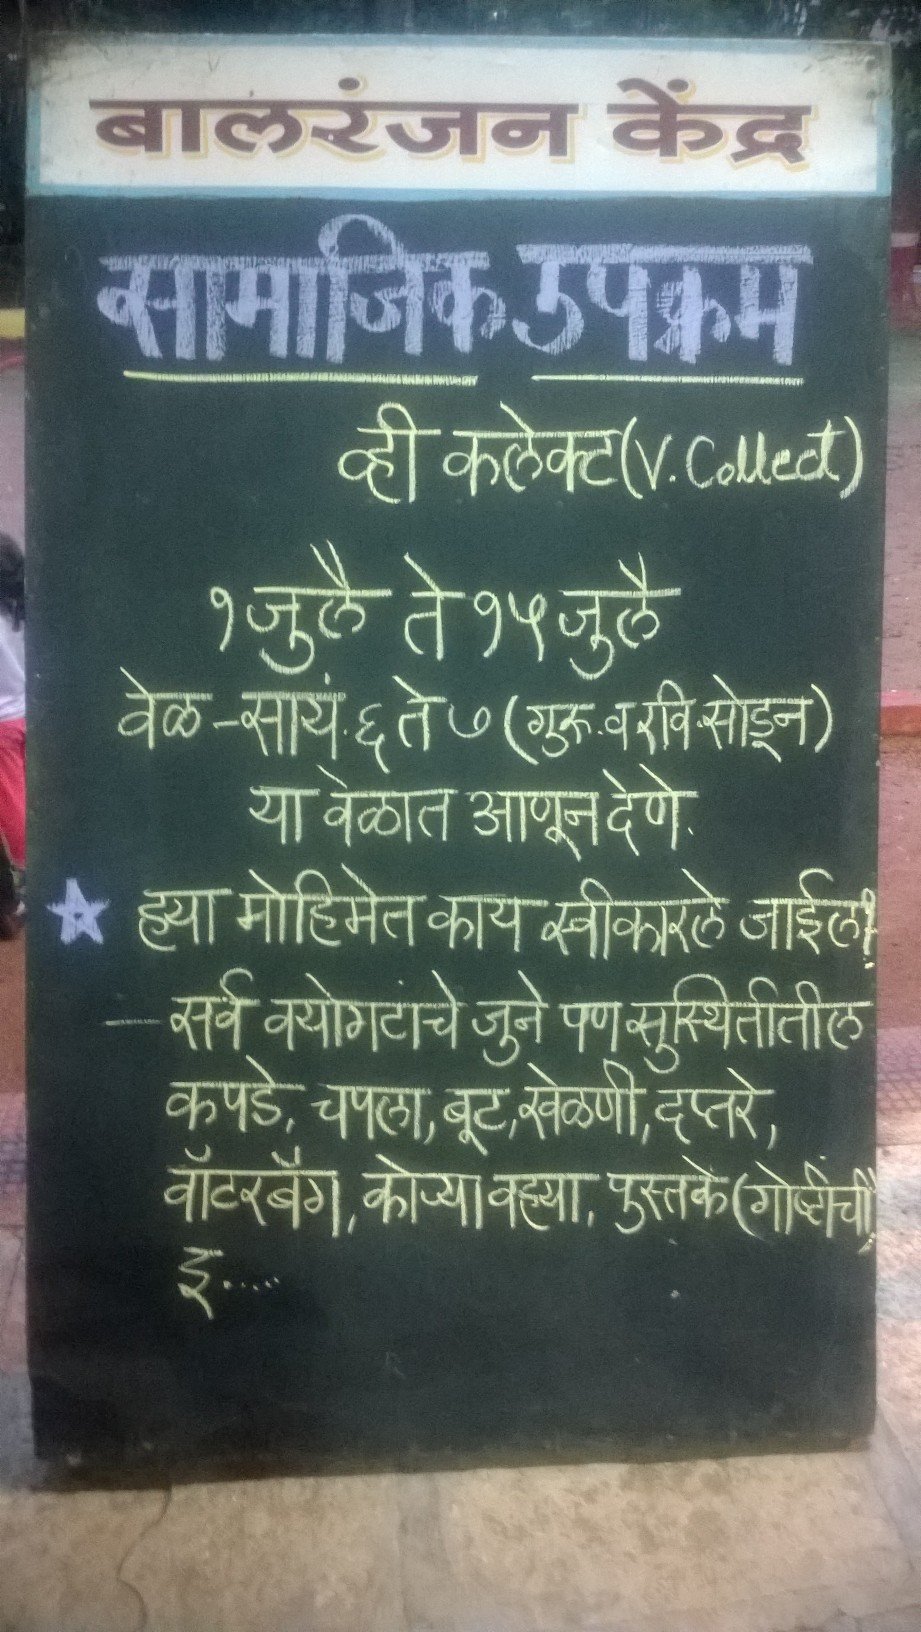 बालरंजन केंद्र
सामाजिक उपक्रम
व्ही कलेक्ट (V. Collect)
१ जुलै ते १५ जुलै
वेळ - सायं. ६ ते ७ (गुरु. व रवि. सोडून)
या वेळात आणून देणे.
ह्या मोहिमेत काय स्वीकारले जाईल?
— सर्व वयोगटांचे जुने पण सुस्थितीतील
कपडे, चपला, बूट, खेळणी, दप्तरे,
वॉटरबॅग, कोऱ्या वह्या, पुस्तके (गोष्टींची)
इ.....